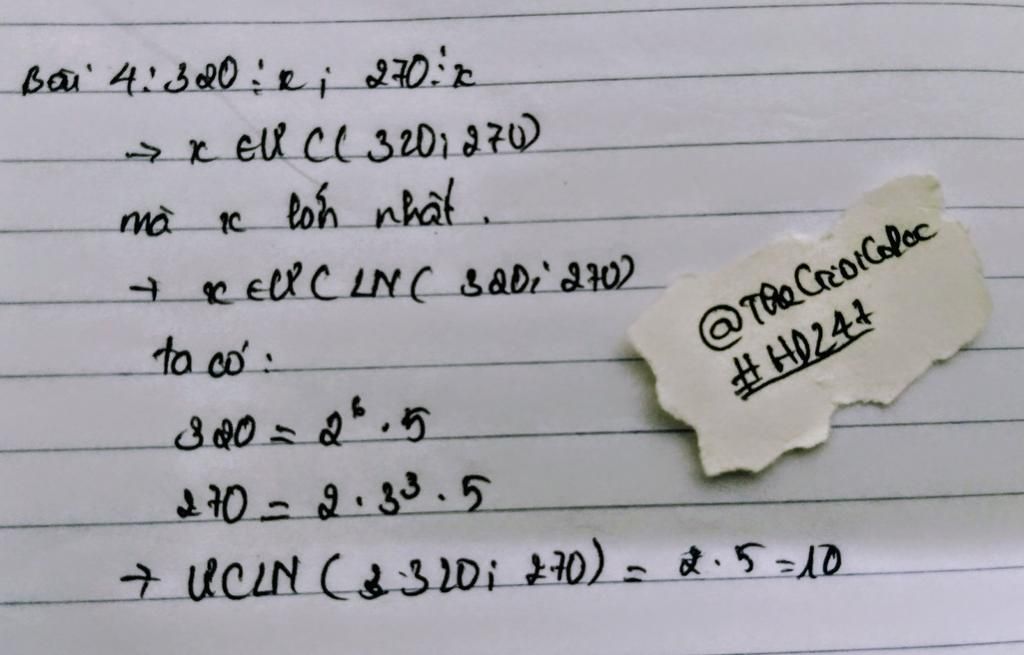 Bài 4: 320 ⋮ x ; 270 ⋮ x
→ x ∈ ƯC( 320; 270)
mà x lớn nhất.
→ x ∈ ƯCLN( 320; 270)
ta có:
320 = 2⁶ . 5
270 = 2 . 3³ . 5
→ ƯCLN ( 320; 270) = 2 . 5 = 10
#HD247